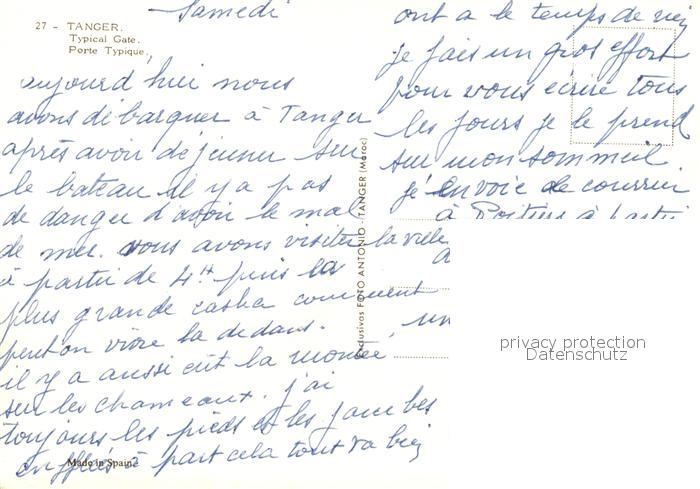 Samedi
27 - TANGER.
Typical Gate.
Porte Typique.
aujourd'hui nous
avons débarquer à Tanger
après avoir déjeuner sur
le bateau il y a pas
de danger d'avoir le mal
de mer. vous avons visiter la ville
à partir de 4H puis la
plus grande casba comment
peut on vivre la dedans.
il y a aussi eut la montée
sur les chameaux. j'ai
toujours les pieds et les jambes
enflées à part cela tout va bien
Made in Spain
Exclusivas FOTO ANTONIO - TANGER (Maroc)
ont a le temps de rien
je fais un gros effort
pour vous écrire tous
les jours je le prend
sur mon sommeil
j'envoie ce courrier
à Poitiers à
un
privacy protection
Datenschutz